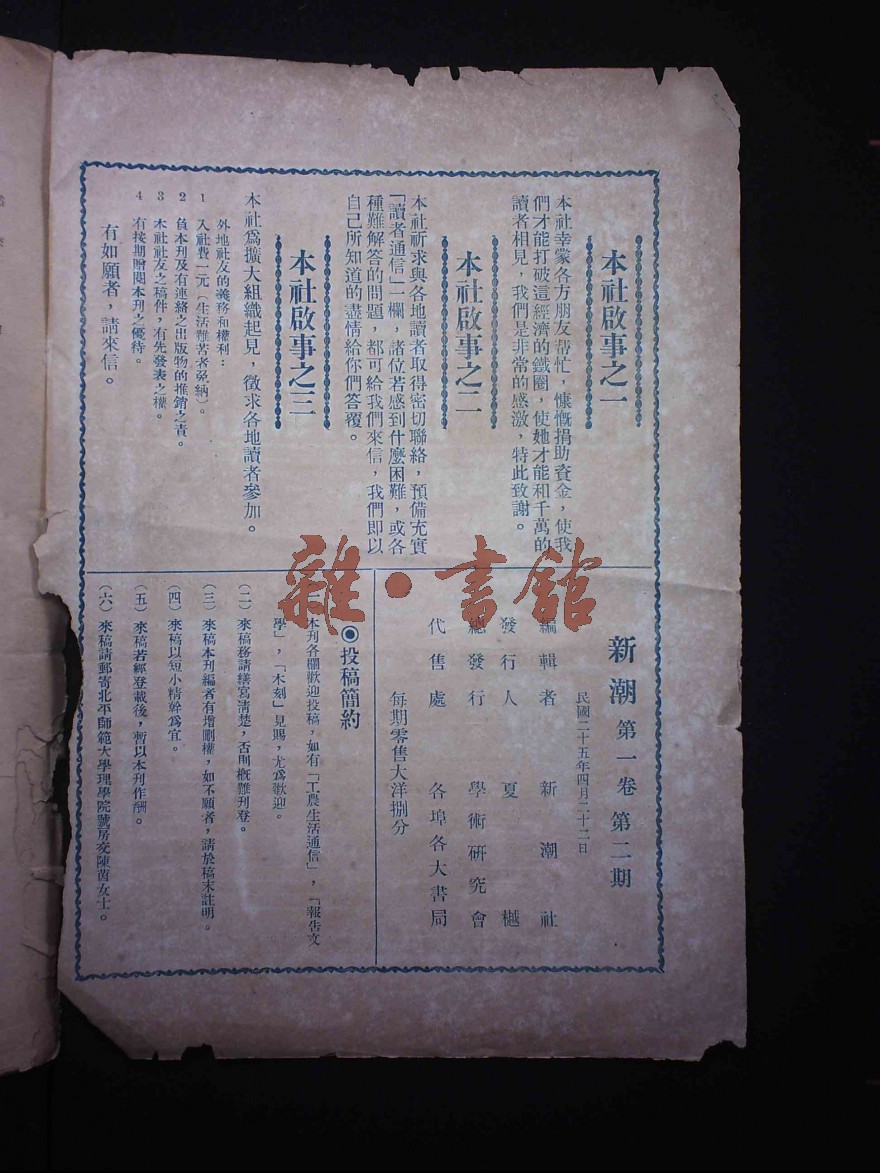 本社啟事之一
本社幸蒙各方朋友帮忙，慷慨捐助資金，使我
們才能打破這經濟的鐵圈，使她才能和千萬的
讀者相見，我們是非常的感激，特此致謝。
本社啟事之二
本社祈求與各地讀者取得密切聯絡，預備充實
「讀者通信」一欄，諸位若感到什麼困難，或各
種難解答的問題，都可給我們來信，我們即以
自己所知道的盡情給你們答覆。
本社啟事之三
本社爲擴大組織起見，徵求各地讀者參加。
外地社友的義務和權利：
1 入社費一元（生活難苦者免納）。
2 負本刊及有連絡之出版物的推銷之責。
3 本社社友之稿件，有先發表之權。
4 有按期贈閱本刊之優待。
有如願者，請來信。
新潮 第一卷 第二期
民國二十五年四月二十二日
編輯者 新潮社
發行人 夏樾
總發行 學術研究會
代售處 各埠各大書局
每期零售大洋捌分
◉投稿簡約
本刊各欄歡迎投稿，如有「工農生活通信」，「報告文
學」，「木刻」見賜，尤爲歡迎。
（二）來稿務請繕寫清楚，否則概難刊登。
（三）來稿本刊編者有增刪權，如不願者，請於稿末註明。
（四）來稿以短小精幹爲宜。
（五）來稿若經登載後，暫以本刊作酬。
（六）來稿請郵寄北平師範大學理學院號房交陳茵女士。
雜·書館